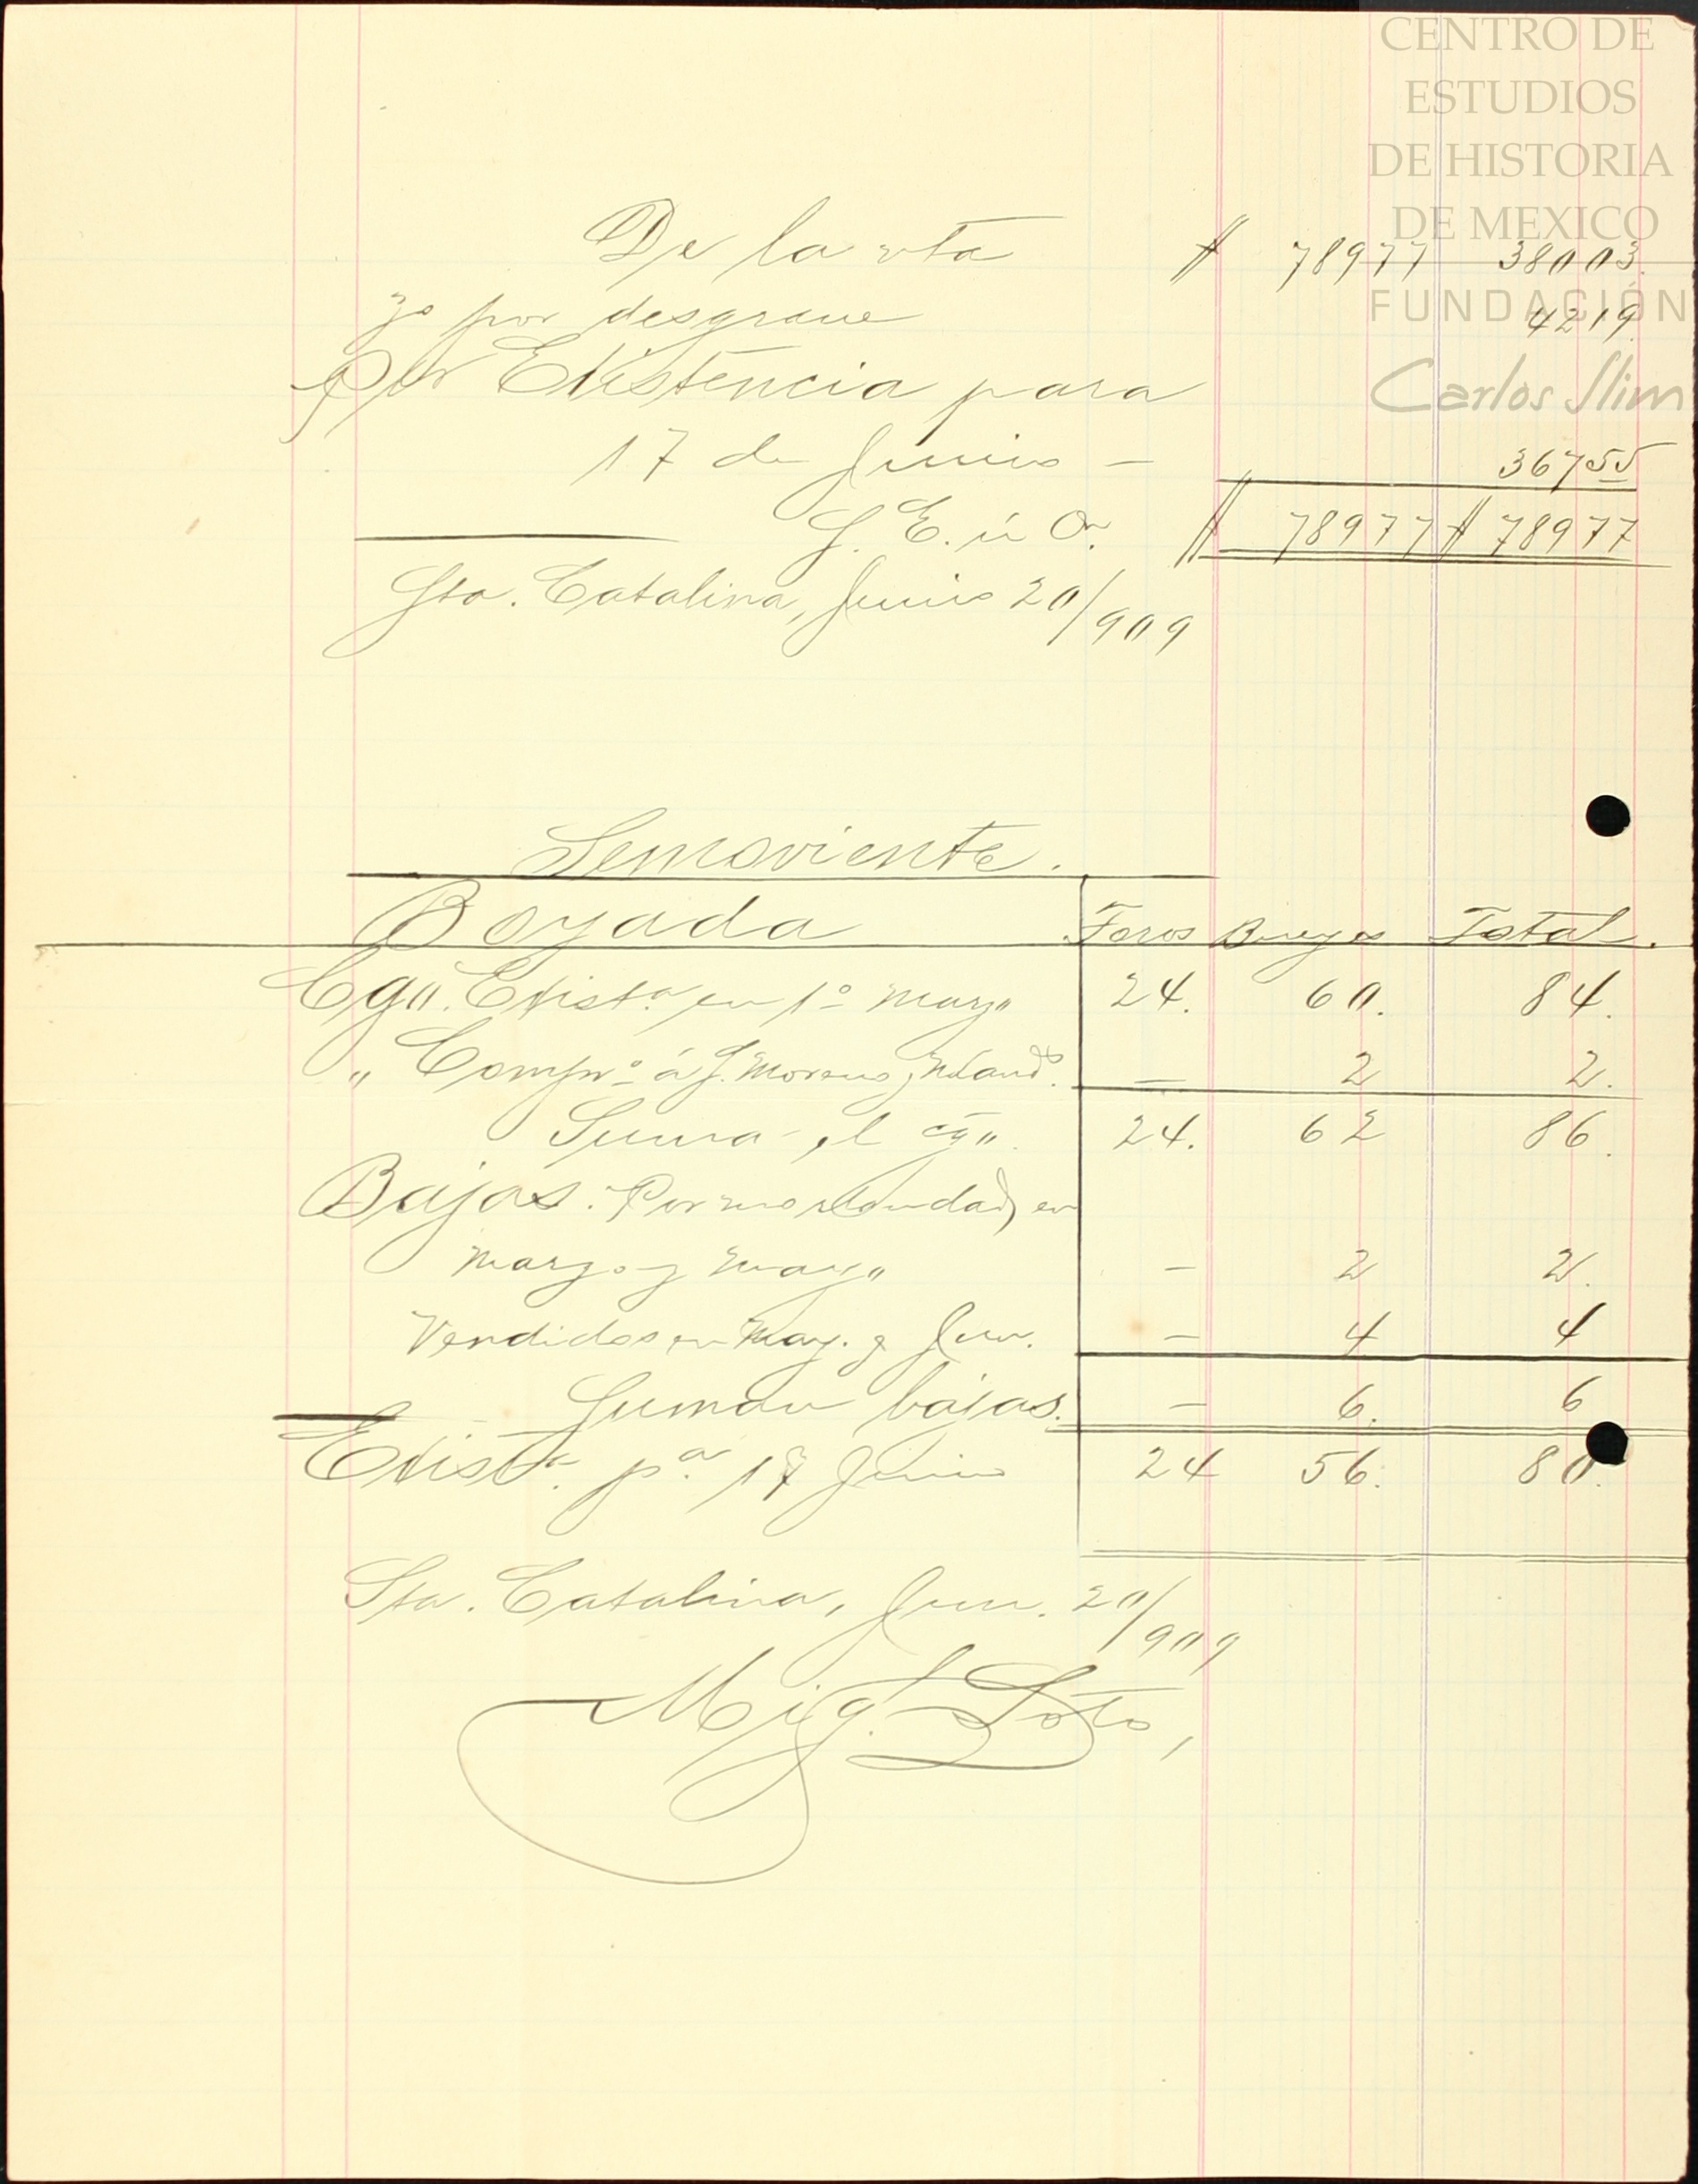 CENTRO DE
ESTUDIOS
DE HISTORIA
DE MEXICO
FUNDACIÓN
Carlos Slim
De la vta $ 78977 38003.
por desgrane 4219.
Por Existencia para
17 de Junio - 36755
S. E. ú O. $ 78977 $ 78977
Sta. Catalina, Junio 20/909
Semoviente.
Boyada Toros Bueyes Total.
Cgo. Exista. en 1o. Mayo 24. 60. 84.
" Compr. á J. Moreno y — 2 2.
Suma el cgo. 24. 62 86.
Bajas. Por mortandad, en
Marzo y Mayo - 2 2.
Vendidos en May. y Jun. - 4 4
Suman bajas. - 6. 6
Exista. pa. 17 Junio 24 56. 80.
Sta. Catalina, Jun. 20/909
Mig. Soto,